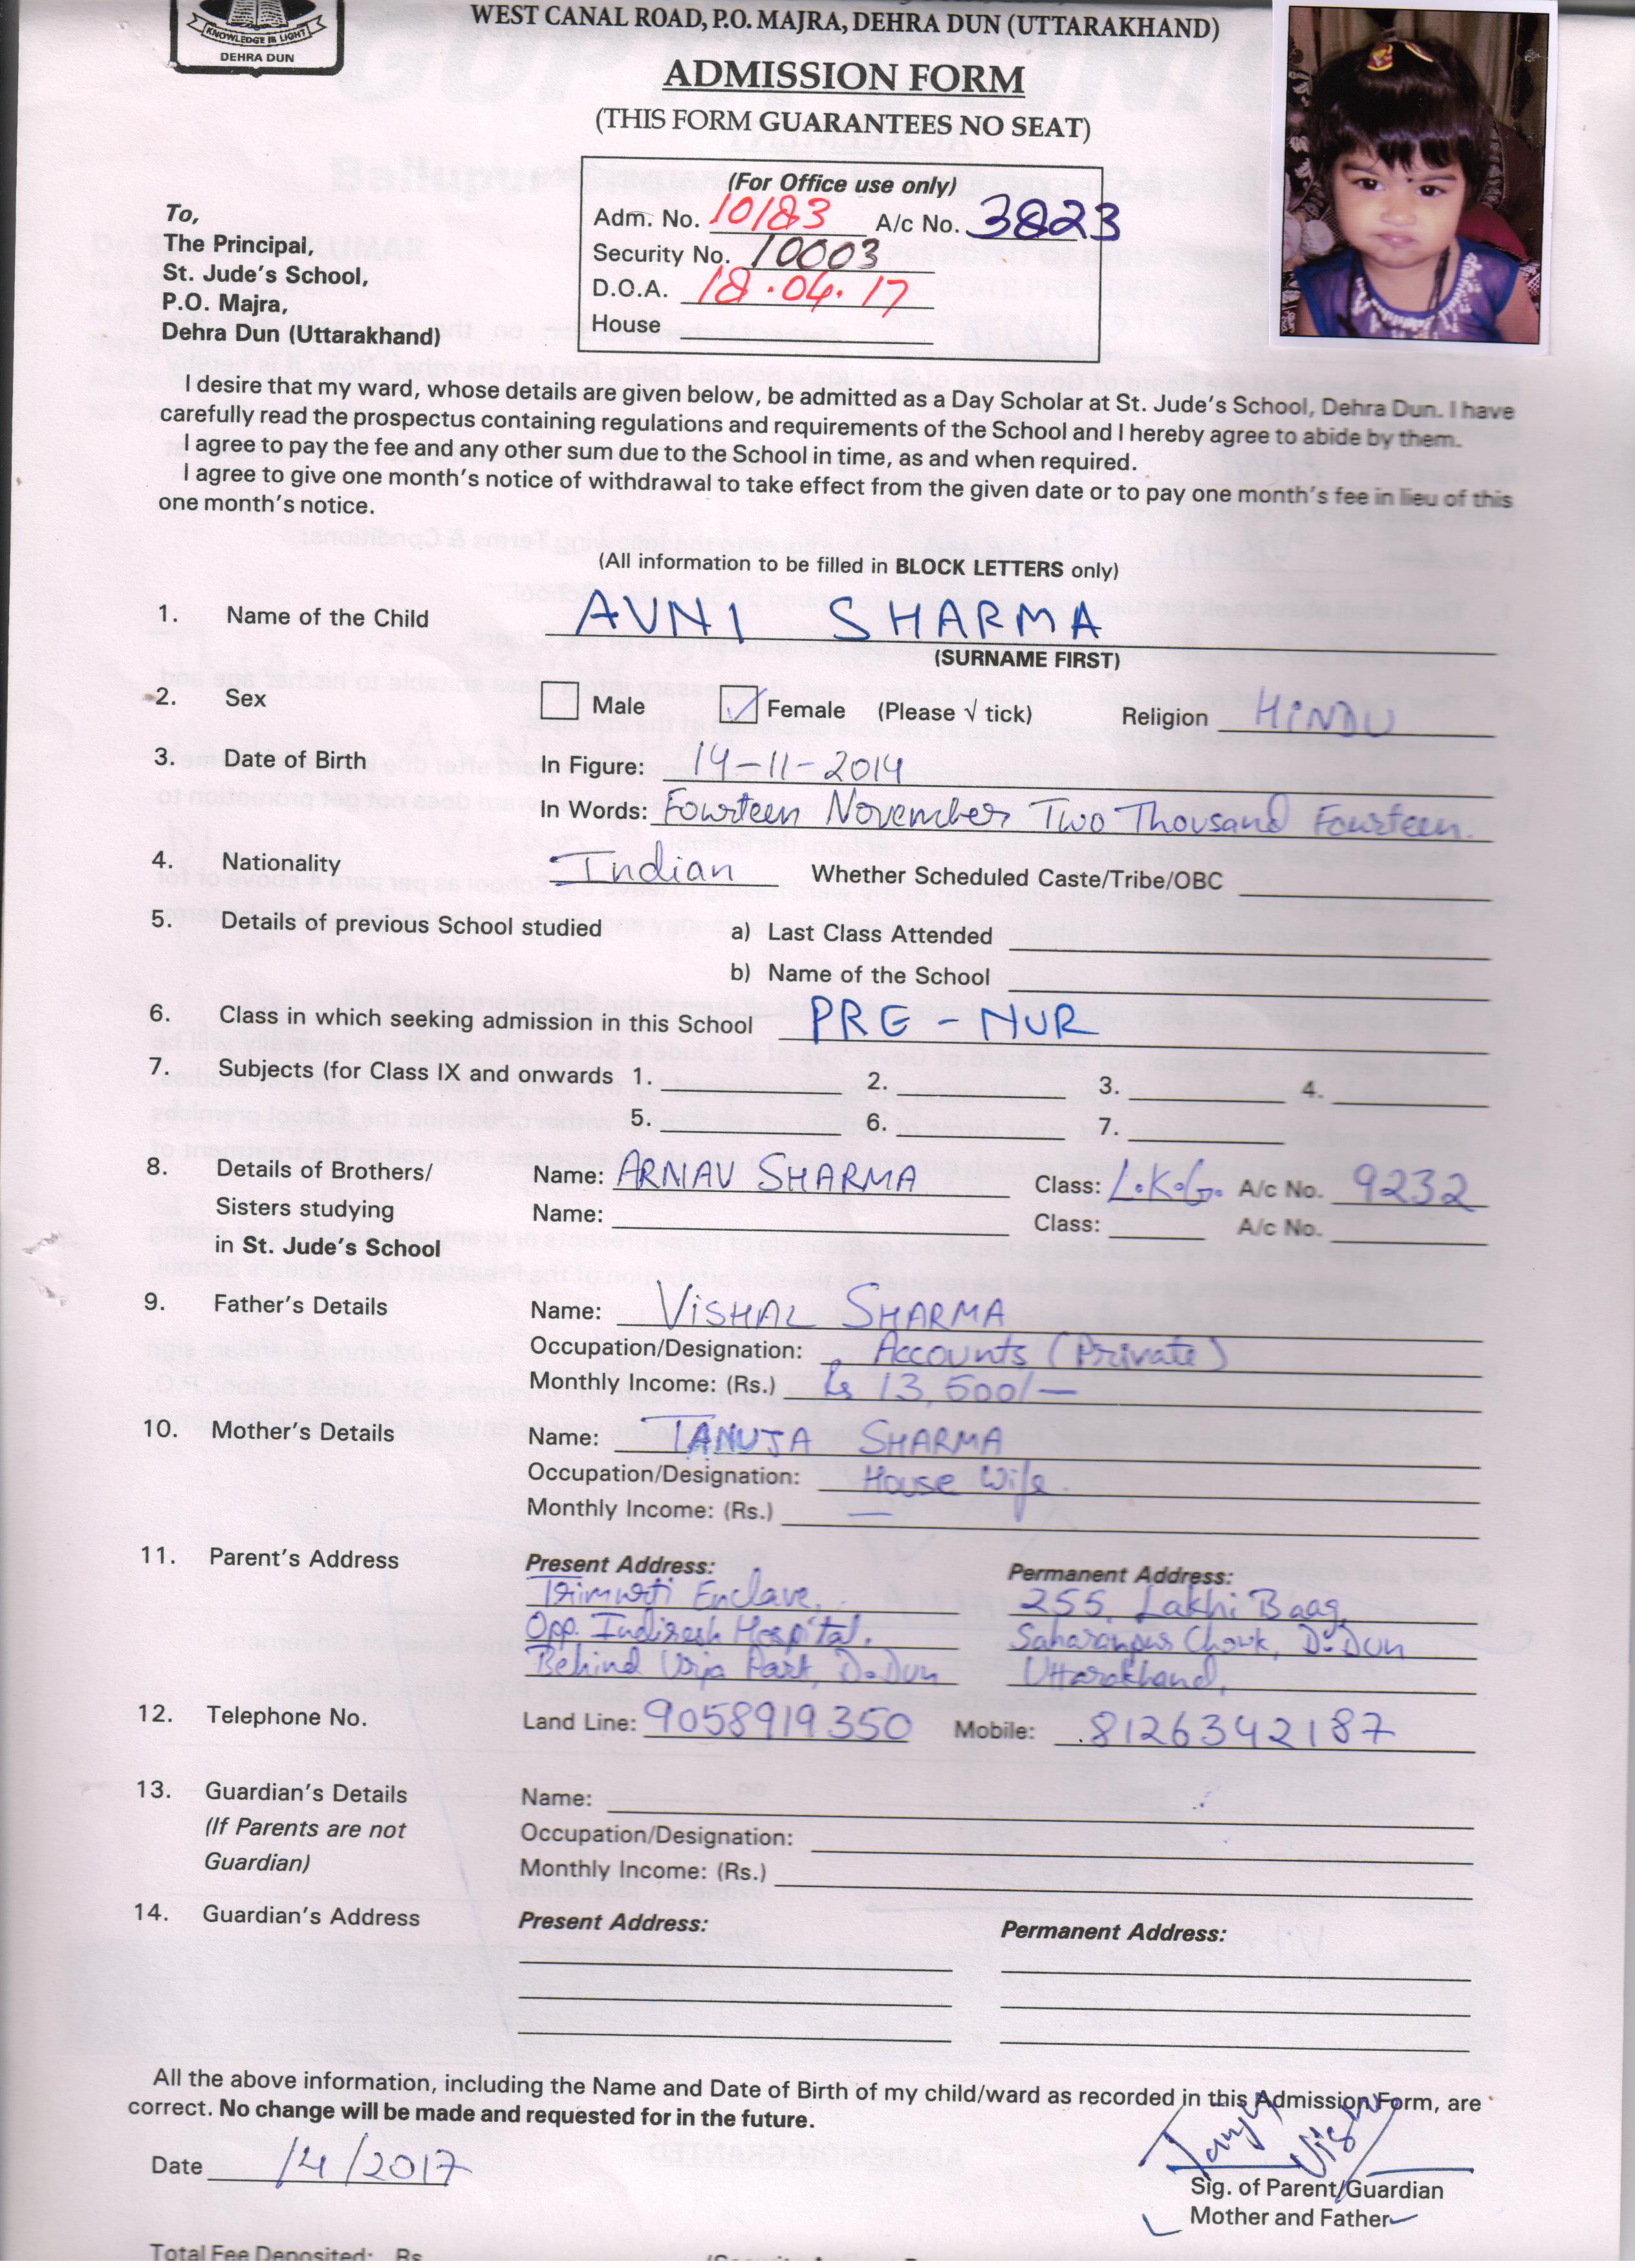 KNOWLEDGE IS LIGHT
DEHRA DUN
WEST CANAL ROAD, P.O. MAJRA, DEHRA DUN (UTTARAKHAND)
ADMISSION FORM
(THIS FORM GUARANTEES NO SEAT)
(For Office use only)
Adm. No. 10183 A/c No. 3823
Security No. 10003
D.O.A. 18.04.17
House
To,
The Principal,
St. Jude's School,
P.O. Majra,
Dehra Dun (Uttarakhand)
I desire that my ward, whose details are given below, be admitted as a Day Scholar at St. Jude's School, Dehra Dun. I have
carefully read the prospectus containing regulations and requirements of the School and I hereby agree to abide by them.
I agree to pay the fee and any other sum due to the School in time, as and when required.
I agree to give one month's notice of withdrawal to take effect from the given date or to pay one month's fee in lieu of this
one month's notice.
(All information to be filled in BLOCK LETTERS only)
1. Name of the Child AVNI SHARMA
(SURNAME FIRST)
2. Sex Male Female (Please √ tick) Religion HINDU
3. Date of Birth In Figure: 14-11-2014
In Words: Fourteen November Two Thousand Fourteen.
4. Nationality Indian Whether Scheduled Caste/Tribe/OBC
5. Details of previous School studied a) Last Class Attended
b) Name of the School
6. Class in which seeking admission in this School PRE - NUR
7. Subjects (for Class IX and onwards 1. 2. 3. 4.
5. 6. 7.
8. Details of Brothers/ Name: ARNAV SHARMA Class: L.K.G. A/c No. 9232
Sisters studying Name: Class: A/c No.
in St. Jude's School
9. Father's Details Name: VISHAL SHARMA
Occupation/Designation: Accounts (Private)
Monthly Income: (Rs.) Rs 13,500/-
10. Mother's Details Name: TANUJA SHARMA
Occupation/Designation: House Wife.
Monthly Income: (Rs.) —
11. Parent's Address Present Address: Permanent Address:
Trimurti Enclave, 255, Lakhi Baag,
Opp. Indiresh Hospital, Saharanpur Chowk, D.Dun
Behind Urja Part, D.Dun Uttarakhand,
12. Telephone No. Land Line: 9058919350 Mobile: 8126342187
13. Guardian's Details Name:
(If Parents are not Occupation/Designation:
Guardian) Monthly Income: (Rs.)
14. Guardian's Address Present Address: Permanent Address:
All the above information, including the Name and Date of Birth of my child/ward as recorded in this Admission Form, are
correct. No change will be made and requested for in the future.
Date /4/2017
Sig. of Parent/Guardian
Mother and Father
Total Fee Deposited: Rs